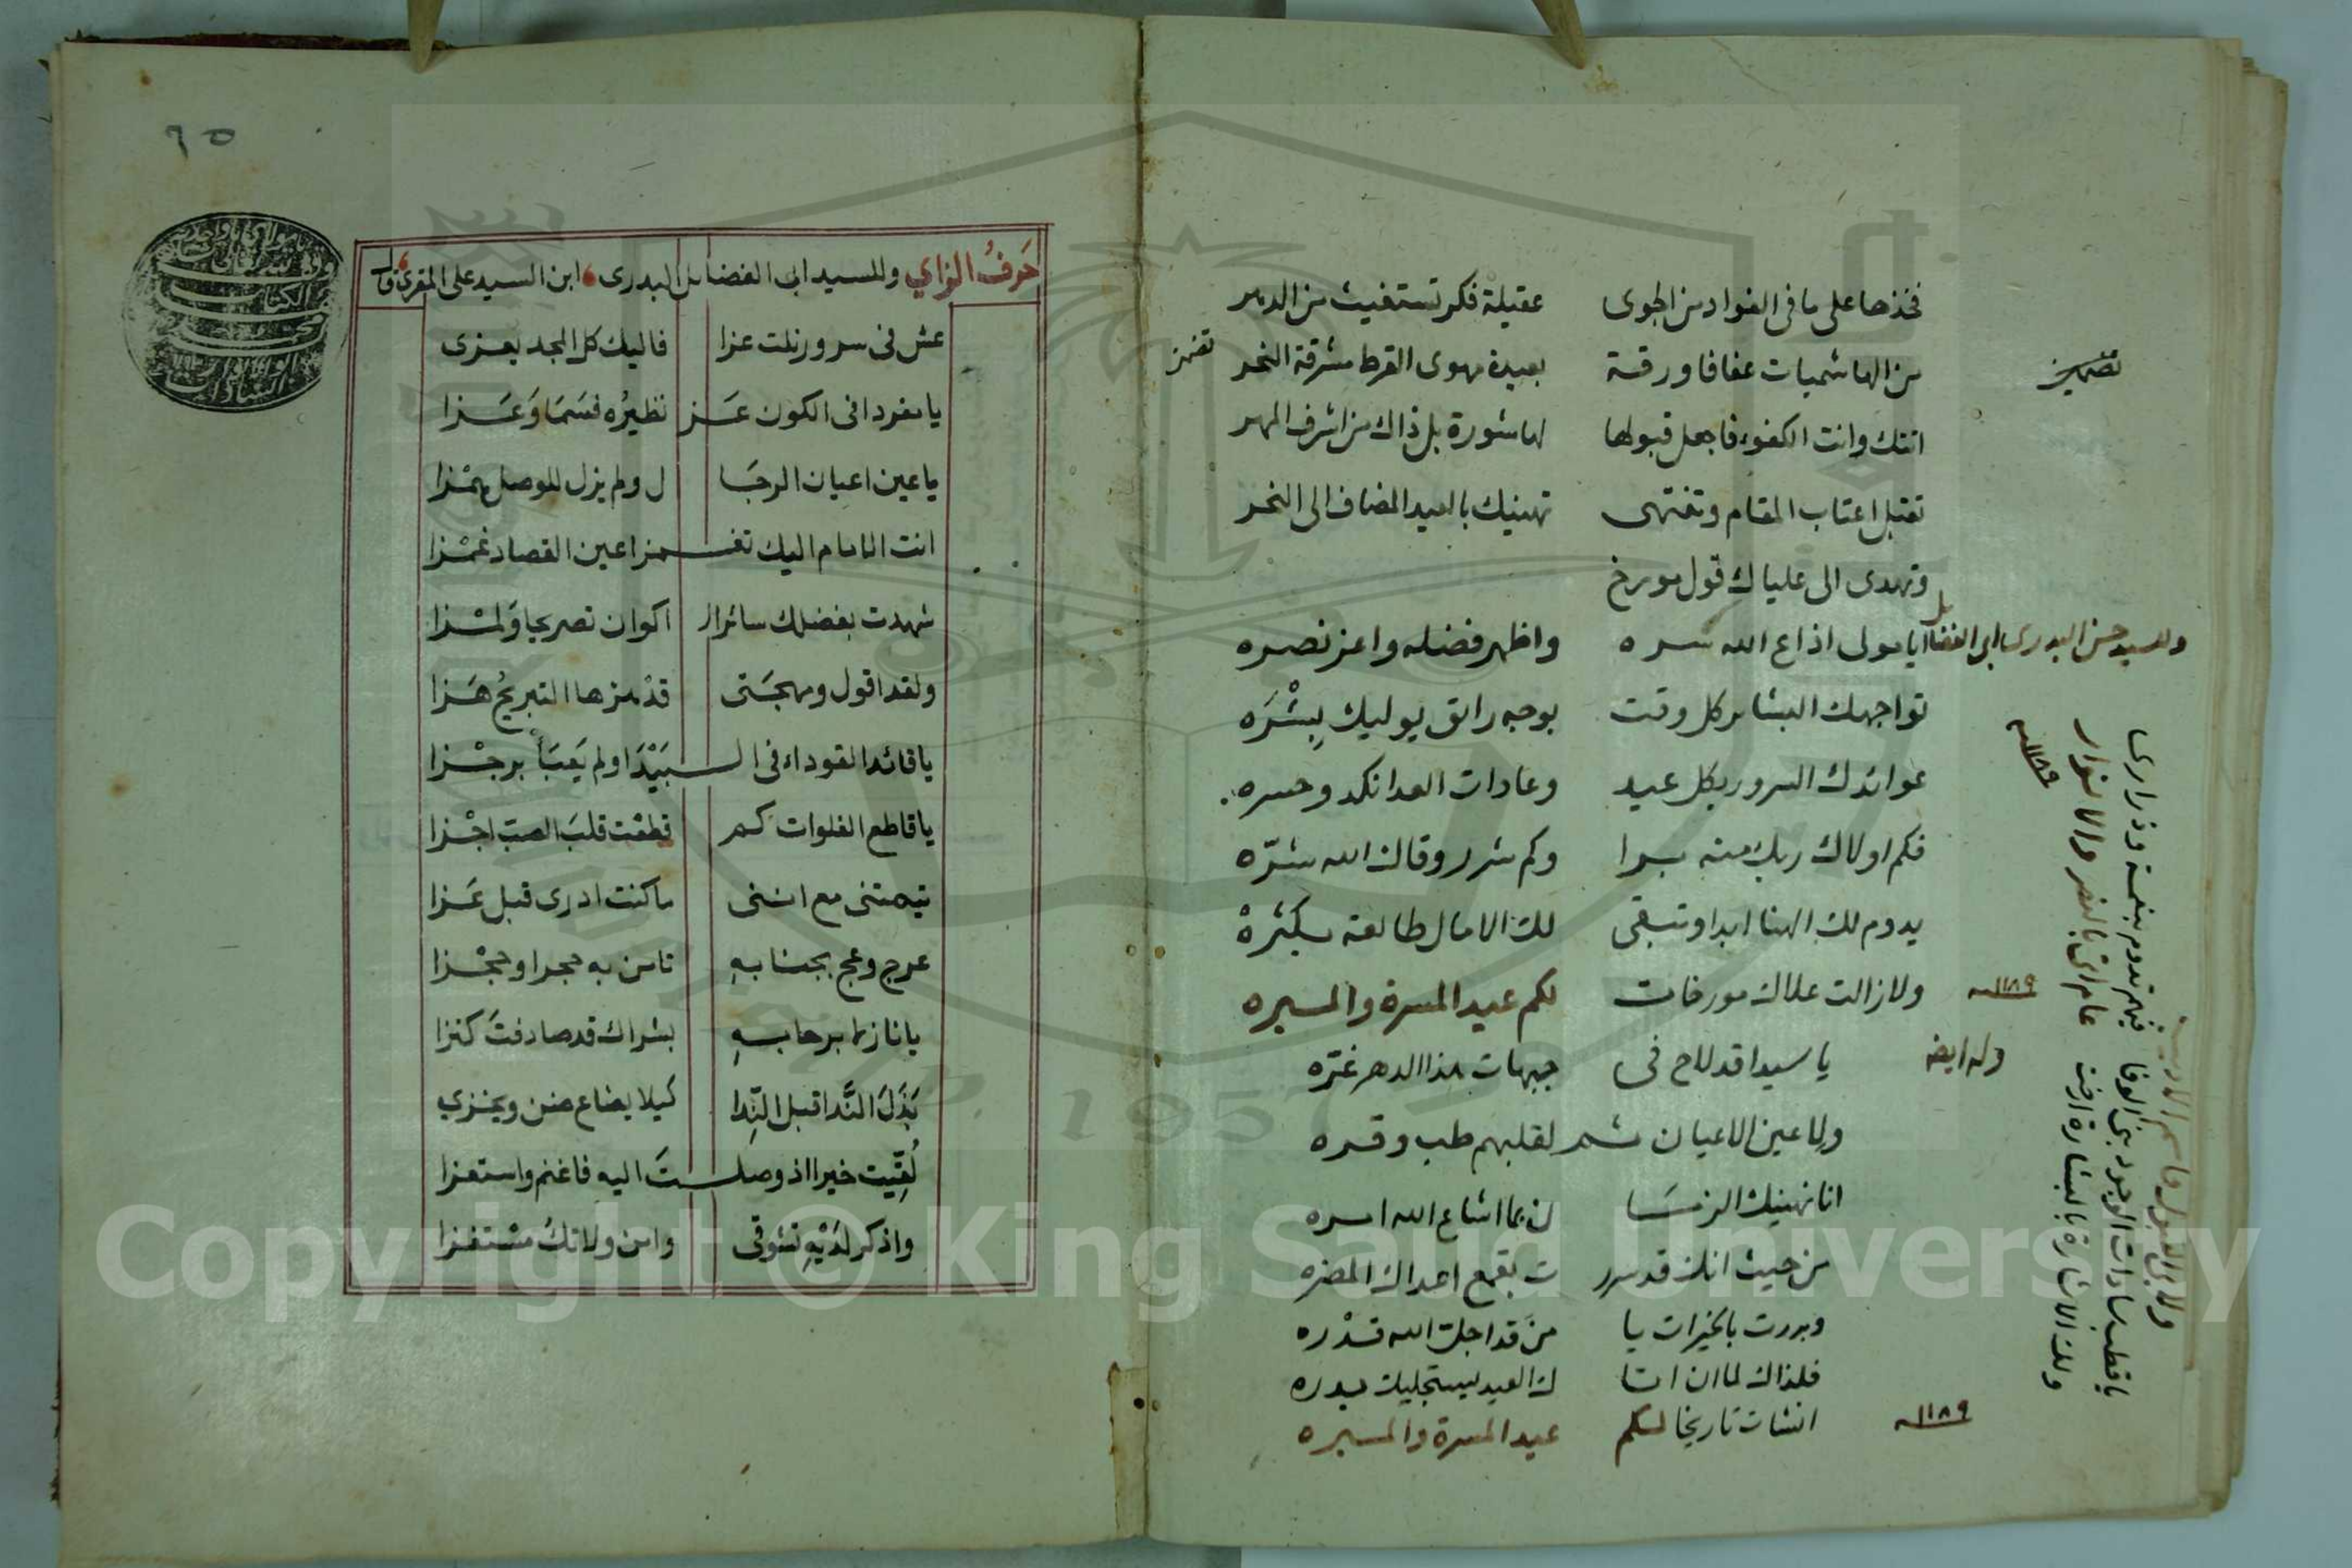 فخذها على ما في الفواد من الجوى عقيلة فكر تستغيث من الدهر
تضمين من الهاشميات عفافا ورقة بعيدة مهوى القرط مشرقة النحر تضمن
اتتك وانت الكفوء فاجعل قبولها لها شورة بل ذاك من اشرف المهر
تقبل اعتاب المقام وتنتهى تهنيك بالعيد المضاف الى النحر
وتهدى الى علياك قول مورخ
وللسيد حسن البدرى ابى الفضايل ايا مولى اذاع الله سره واظهر فضله واعز نصره
تواجهك البشاير كل وقت بوجه رائق يوليك بِبشْرَه
عوائدك السرور بكل عيد وعادات العدا نكد وحسره
فكم اولاك ربك منه برا وكم شرر وقاك الله شرّه
يدوم لك الهنا ابدا وتبقى لك الامال طالعة بكثره
ولا زالت علاك مورخات لكم عيد المسرة والمبره
١١٨٩
وله ايضا يا سيدا قد لاح فى جبهات هذا الدهر غرّه
ولاعين الاعيان ثم لقلبهم طب وقره
انا نهنيك الزمَا ن بما اشاع الله امره
من حيث انك قد سرر ت بقمع اعداك المضره
وبررت بالخيرات يا من قد اجل الله قدْره
فلذاك لما ان اتا ك العيد يستجليك بدره
انشات تاريخا لكم عيد المسرة والمبره
١١٨٩
يا قطب سادات الوجود بنى الوفا فيهم تدوم بنعمة وذرارى
ولك الاشارة بالبشارة ارخت عام اتى بالنصر والانوار
١١٨٩
٦٥
حَرفُ الزاي وللسيد ابى الفضايل البدرى ابن السيد على المقرى قال
عش فى سرور نلت عزا فاليك كل المجد يعزى
يا مفردا فى الكون عَز نظيرُه فسَمَا وَعَزا
يا عين اعيان الرجَا ل ولم يزل للوصل نهزا
انت الامام اليك تغمز اعين القصاد غمْزا
شهدت بفضلك سائر الـ اكوان تصريحا وَلمْزا
ولقد اقول ومهجَتى قدْ هزها التبريحُ هَزا
يا قائد القوداء فى البَيْدَا ولم يَعبَأ برجْزا
يا قاطع الفلوات كم قطعْت قلبَ الصب اجْزا
تيمتنى مع اننى ما كنت ادرى قبل عَزا
عرج وعج بجنابهِ تامن به حجرا وحجْزا
يا نازلا برحابهِ بشراك قد صادفتَ كنزا
بَذَلَ النَّدا قبل النِّدا كيلا يضاع ضنن ويخزي
لُقِّيت خيرا اذ وصلتَ اليه فاغنم واستعزا
واذكر لدَيْهِ تشوقى وامن ولا تكُ مشْتفزا
Copyright © King Saud University
1957